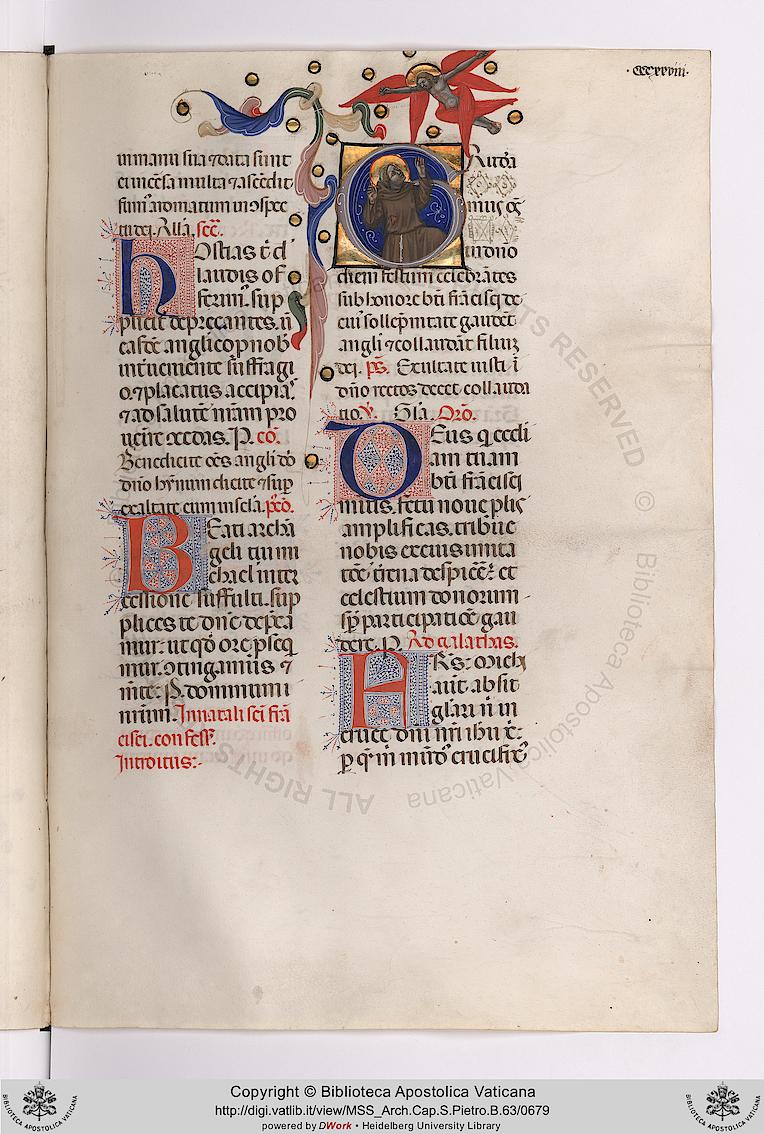 ·CCCxxviii·
in manu sua ⁊ data sunt
ei incēsa multa ⁊ ascēdit
fum᷒ aromatum in ↄspec
tu dei. Alla. Sec̄.
Hostias t̄ d̄
laudis of
ferim᷒. sup
plicit̄ deprecantes. ut
easdē anglico ꝓ nob̄
interueniente suffragi
o. ⁊ placatus accipias.
⁊ ad salutē nr̄am pro
uenire ↄcedas. P. cō.
Benedicite oēs angli dn̄i
dn̄o hymnum dicite ⁊ sup
exaltate eum in scl̄a. p̄cō.
Beati archā
geli tui mi
chael inter
cessione suffulti. sup
plices te dn̄e depca
mur. ut qd̓ ore pseq
mur. ↄtingamus ⁊
mēte. P. dominum
nr̄um. In natali sci frā
cisci. confess᷒.
Introitus:-
Gaudea
mus oēs
in dn̄o
diem festum celebrātes
sub honore bt̄i frācisci de
cui᷒ sollempnitate gaudēt
angli ⁊ collaudāt filium
dei. ps̄. Exultate iusti ī
dn̄o rectos decet collauda
tio. V̄. Gl̄a. Orō.
Deus q ecclī
am tuam
bt̄i frācisci
mitis. fetu noue plis
amplificas. tribue
nobis ex eius imita
tōē t̄rena despicē. et
celestium donorum
sp̄ participatiōe gau
dere. P. Ad galathas.
FRs̄: michi
aūt absit
glari n̄ in
cruce dn̄i nr̄i ihū x̄.
ꝑ quē m̄ mūd᷒ crucifix᷒
Copyright © Biblioteca Apostolica Vaticana
http://digi.vatlib.it/view/MSS_Arch.Cap.S.Pietro.B.63/0679
powered by DWork • Heidelberg University Library
BIBLIOTECA APOSTOLICA VATICANA
BIBLIOTECA APOSTOLICA VATICANA
ALL RIGHTS RESERVED © Biblioteca Apostolica Vaticana